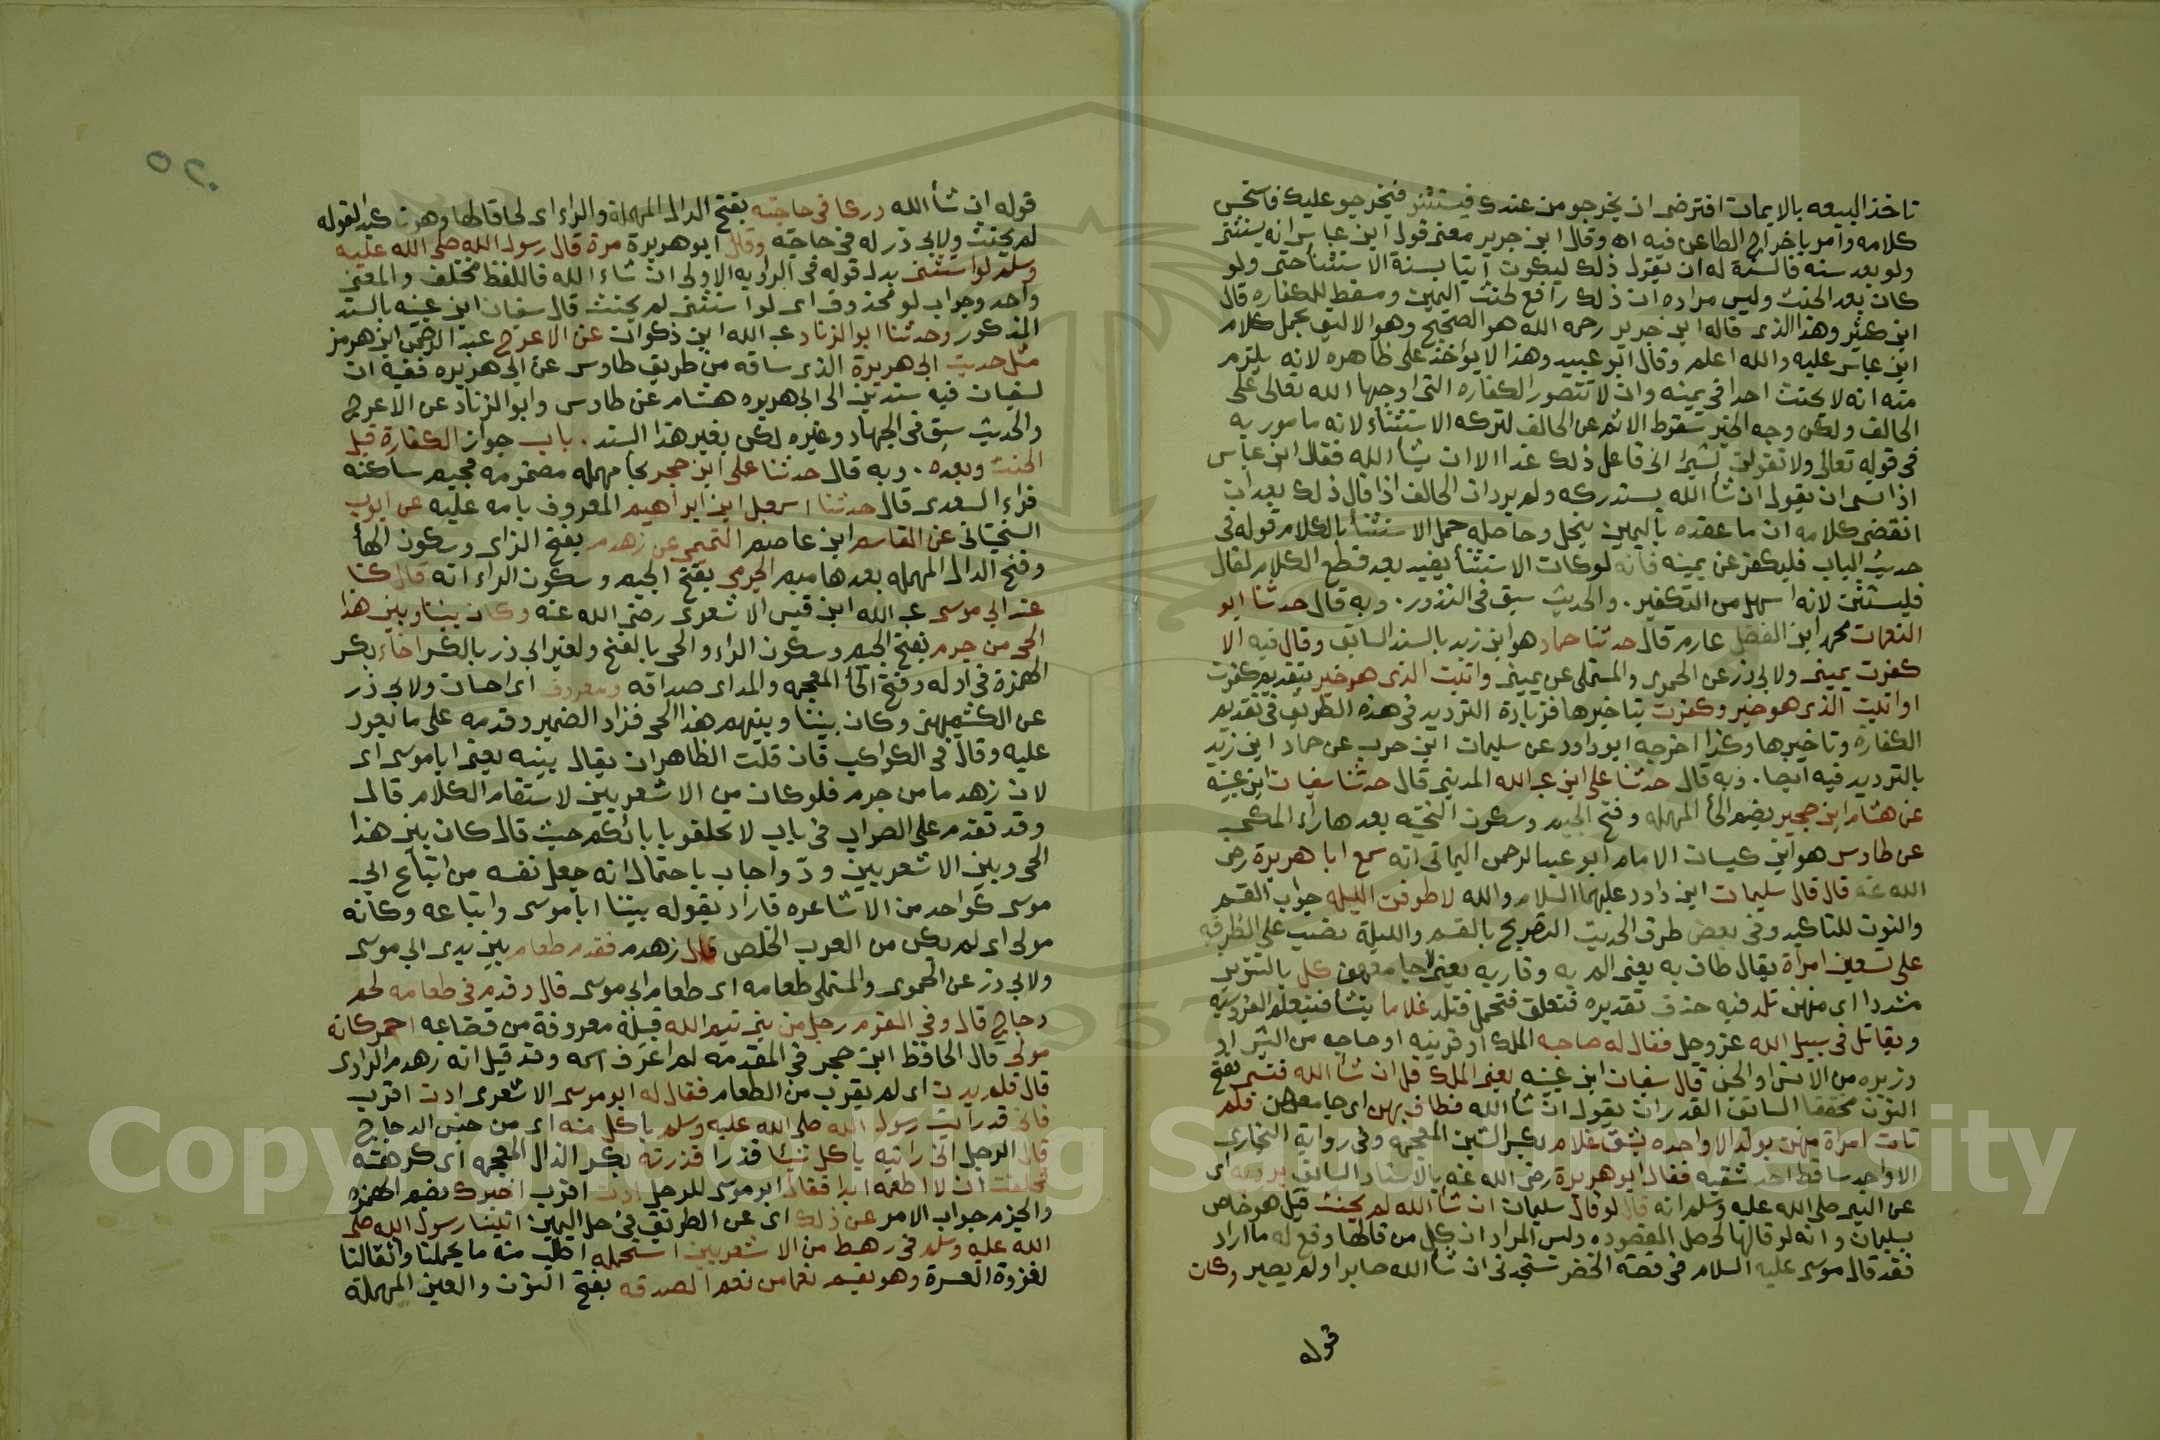 تاخذ البيعه بالايمان افترضى ان يخرجو من عندك فيستثنو فيخرجو عليك فاستحسن
كلامه وامر باخراج الطاعن فيه اه وقال ابن جرير معنى قول ابن عباس انه يستثنى
ولو بعد سنه فالسنة له ان يقول ذلك ليكون آتيا بسنة الاستثنأ حتى ولو
كان بعد الحنث وليس مراده ان ذلك رافع لحنث اليمين ومسقط للكفاره قال
ابن كثير وهذا الذى قاله ابن جرير رحمه الله هو الصحيح وهو الاليق بحمل كلام
ابن عباس عليه والله اعلم وقال ابو عبيد وهذا لا يؤخذ على ظاهره لانه يلتزم
منه انه لا يحنث احد فى يمينه وان لا تتصور الكفاره التى اوجبها الله تعالى على
الحالف ولكن وجه الخبر سقوط الاثم عن الحالف لتركه الاستثناء لانه مامور به
فى قوله تعالى ولا تقولن لشئ انى فاعل ذلك غدا الا ان يشأ الله فقال ابن عباس
اذا نسى ان يقول ان شأ الله يستدركه ولم يرد ان الحالف اذا قال ذلك بعد ان
انقضى كلامه ان ما عقده باليمين ينحل وحاصله حمل الاستثنأ بالكلام قوله فى
حديث الباب فليكفر عن يمينه فانه لو كان الاستثنأ يفيد بعد قطع الكلام لقال
فليستثن لانه اسهل من التكفير. والحديث سبق فى النذور. وبه قال حدثنا ابو
النعمان محمد ابن الفضل عارم قال حدثنا حماد هو ابن زيد بالسند السابق وقال فيه الا
كفرت يمينى ولابى ذر عن الحموى والمستملى عن يمينى واتيت الذى هو خير بتقديم كفرت
او اتيت الذى هو خير وكفرت بتاخيرها فزيادة الترديد فى هذه الطريق فى تقديم
الكفارة وتاخيرها وكذا اخرجه ابو داود عن سليمان ابن حرب عن حماد ابن زيد
بالترديد فيه ايضا. وبه قال حدثنا على ابن عبد الله المدينى قال حدثنا سفيان ابن عيينه
عن هشام ابن حجير بضم الحأ المهمله وفتح الجيم وسكون التحتيه بعدها راء المكى
عن طاوس هو ابن كيسان الامام ابو عبد الرحمن اليمانى انه سمع ابا هريرة رضى
الله عنه قال قال سليمان ابن داود عليهما السلام والله لاطوفن الليله جواب القسم
والنون للتاكيد وفى بعض طرق الحديث التصريح بالقسم والليلة نصب على الظرفيه
على تسعين امرأة يقال طاف به يعنى الم به وقاربه يعنى لاجامعهن كل بالتنوين
مشددا اى منهن تلد فيه حذف تقديره فتعلق فتحمل فتلد غلاما ينشأ فيتعلم الفروسيه
ويقاتل فى سبيل الله عز وجل فقال له صاحبه الملك او قرينه او صاحبه من البشر او
وزيره من الانس او الجن قال سفيان ابن عيينه يعنى الملك قل ان شأ الله فنسى بفتح
النون مخففا السابق القدر ان يقول ان شأ الله فطاف بهن اى جامعهن فلم
تات امراة منهن بولد الا واحده بشق غلام بكسر الشين المعجمه وفى رواية البخارى
الا واحد ساقط احد شقيه فقال ابو هريرة رضى الله عنه بالاسناد السابق يرويه اى
عن النبى صلى الله عليه وسلم انه قال لو قال سليمان ان شأ الله لم يحنث قيل هو خاص
بسليمان وانه لو قالها لحصل المقصوده وليس المراد ان كل من قالها وقع له ما اراد
فقد قال موسى عليه السلام فى قصة الخضر ستجدنى ان شأ الله صابرا ولم يصبر وكان
قوله
٥٢٠
قوله ان شأ الله دركا فى حاجته بفتح الدال المهملة والراء اى لحاقا لها وهو تاكيد لقوله
لم يحنث ولابى ذر له فى حاجته وقال ابو هريرة مرة قال رسول الله صلى الله عليه
وسلم لو استثنى بدل قوله فى الروايه الاولى ان شاء الله فاللفظ مختلف والمعنى
واحد وجواب لو محذوف اى لو استثنى لم يحنث قال سفيان ابن عيينه بالسند
المذكور وحدثنا ابو الزناد عبد الله ابن ذكوان عن الاعرج عبد الرحمن ابن هرمز
مثل حديث ابى هريرة الذى ساقه من طريق طاوس عن ابى هريره ففيه ان
لسفيان فيه سندين الى ابى هريره هشام عن طاوس وابو الزناد عن الاعرج
والحديث سبق فى الجهاد وغيره لكن بغير هذا السند. باب جواز الكفارة قبل
الحنث وبعده. وبه قال حدثنا على ابن حجر بحا مهمله مضمومه فجيم ساكنه
فراء السعدى قال حدثنا اسمعيل ابن ابراهيم المعروف بامه عليه عن ايوب
السختيانى عن القاسم ابن عاصم التميمى عن زهدم بفتح الزاى وسكون الهأ
وفتح الدال المهمله بعدها ميم الجرمى بفتح الجيم وسكون الراء انه قال كنا
عند ابى موسى عبد الله ابن قيس الاشعرى رضى الله عنه وكان بيننا وبين هذا
الحى من جرم بفتح الجيم وسكون الراء والحى بالفتح ولغير ابى ذر بالكسر اخاء بكسر
الهمزة فى اوله وفتح الخأ المعجمه والمد اى صداقه ومعروف اى احسان ولابى ذر
عن الكشميهنى وكان بيننا وبينهم هذا الحى فزاد الضمير وقدمه على ما يعود
عليه وقال فى الكواكب فان قلت الظاهر ان يقال بينه يعنى ابا موسى اى
لان زهدما من جرم فلو كان من الاشعريين لاستقام الكلام قال
وقد تقدم على الصواب فى باب لا تحلفو بابائكم حيث قال كان بين هذا
الحى وبين الاشعريين ود واجاب باحتمال انه جعل نفسه من اتباع ابى
موسى كواحد من الاشاعره فاراد بقوله بيننا ابا موسى واتباعه وكانه
مولى اى لم يكن من العرب الخلص قال زهدم فقدم طعام بين يدى ابى موسى
ولابى ذر عن الحموى والمستملى طعامه اى طعام ابى موسى قال وقدم فى طعامه لحم
دجاج قال وفى القوم رجل من بنى تيم الله قبيلة معروفة من قضاعه احمر كانه
مولى قال الحافظ ابن حجر فى المقدمه لم اعرف اسمه وقد قيل انه زهدم الراوى
قال فلم يدن اى لم يقرب من الطعام فقال له ابو موسى الاشعرى ادن اقرب
فانى قد رأيت رسول الله صلى الله عليه وسلم ياكل منه اى من جنس الدجاج
قال الرجل انى رايته ياكل شيئا قذرا قذرته بكسر الذال المعجمه اى كرهته
فحلفت ان لا اطعمه ابدا فقال ابو موسى للرجل ادن اقرب اخبرك بضم الهمزه
والجزم جواب الامر عن ذلك اى عن الطريق فى حل اليمين اتينا رسول الله صلى
الله عليه وسلم فى رهط من الاشعريين استحمله اطلب منه ما يحملنا واثقالنا
لغزوة العسرة وهو يقسم نعما من نعم الصدقه بفتح النون والعين المهملة
Copyright © King Saud University
1957